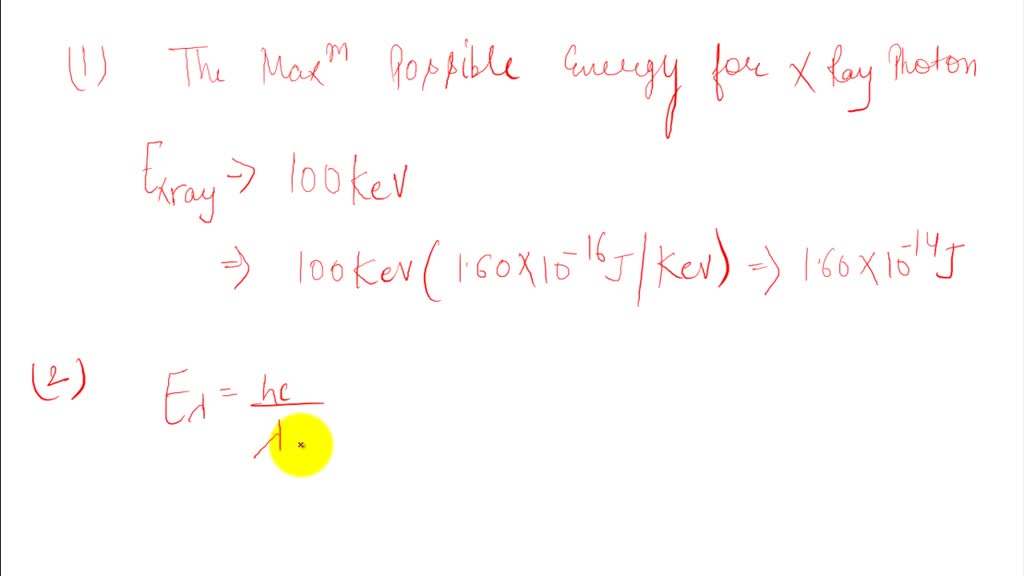 (1) The Maxᵐ Possible Energy for X Ray Photon
Exray → 100 KeV
⇒ 100 KeV (1.60 X 10⁻¹⁶ J/KeV) ⇒ 1.60 X 10⁻¹⁴ J
(2) Eλ = hc/λ